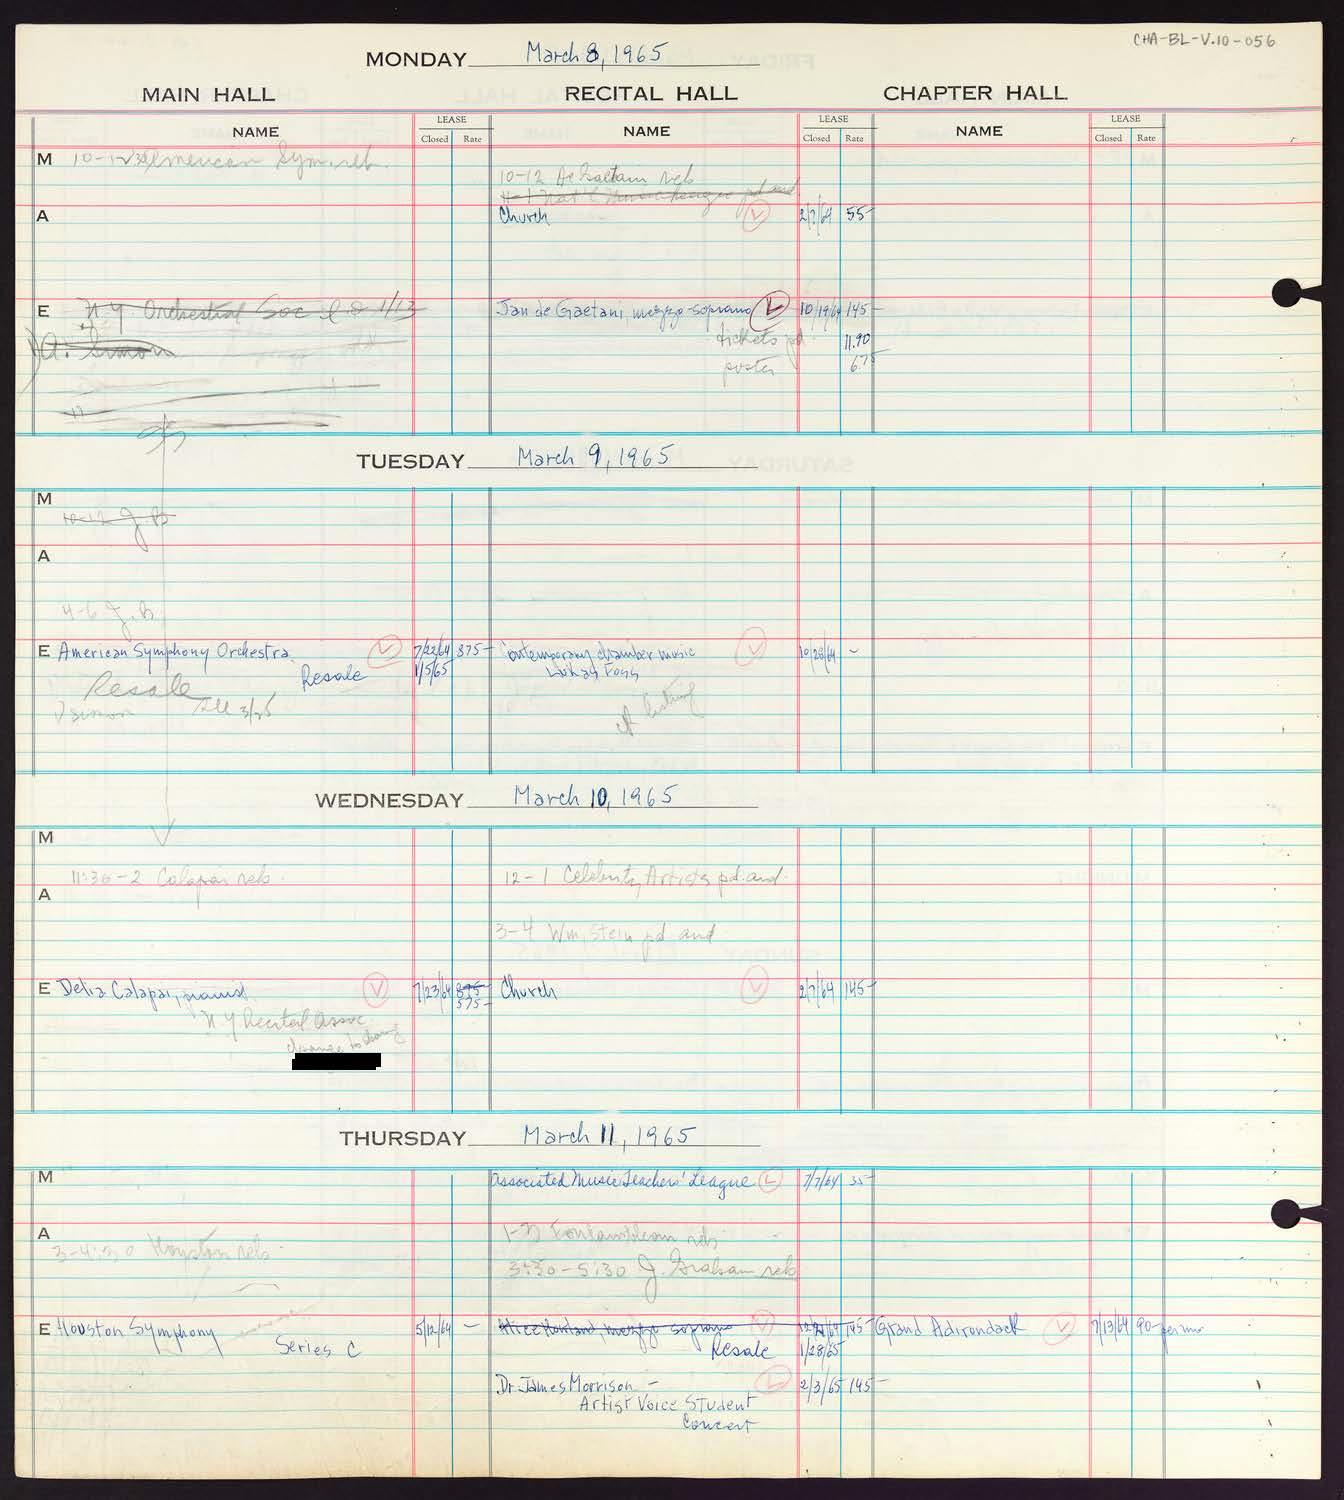 CHA-BL-V.10-056
MONDAY March 8, 1965
MAIN HALL RECITAL HALL CHAPTER HALL
NAME LEASE Closed Rate NAME LEASE Closed Rate NAME LEASE Closed Rate
M 10-12:30 American Sym. reh.
10-12 de Gaetani reh
A Church 2/7/64 55-
E N.Y. Orchestral Soc 1/13
Jan de Gaetani, mezzo-soprano 10/19/64 145-
A. Simon
tickets pd. 11.90
poster 6.75
TUESDAY March 9, 1965
M
10-12 J.B.
A
4-6 J.B.
E American Symphony Orchestra 7/22/64 875- Contemporary chamber music 10/28/64 -
Resale 1/5/65 Lukas Foss
Resale
simon 3/25
listing
WEDNESDAY March 10, 1965
M
11:30-2 Calapai reh. 12-1 Celebrity Artists pd. aud.
A
3-4 Wm. Stein pd aud
E Delia Calapai, pianist 7/23/64 875 Church 2/7/64 145-
575-
N.Y Recital Assoc.
change to
THURSDAY March 11, 1965
M Associated Music Teachers' League 7/7/64 35-
A
3-4:30 Houston reh.
3:30-5:30 J. Graham reh
E Houston Symphony 5/12/64 - Alice Howland, mezzo soprano 145- Grand Adirondack 7/13/64 90- per mo
Series C Resale 1/28/65
Dr. James Morrison - 2/3/65 145-
Artist Voice Student
Concert